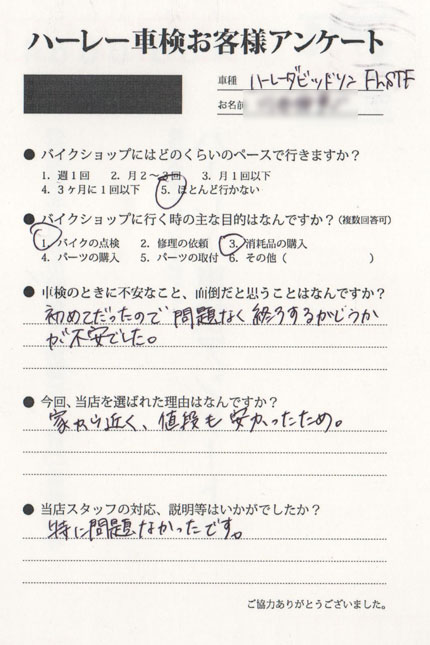 ハーレー車検お客様アンケート
車種 ハーレーダビッドソン FLSTF
お名前
● バイクショップにはどのくらいのペースで行きますか？
1. 週1回 2. 月2〜3回 3. 月1回以下
4. 3ヶ月に1回以下 5. ほとんど行かない
● バイクショップに行く時の主な目的はなんですか？（複数回答可）
1. バイクの点検 2. 修理の依頼 3. 消耗品の購入
4. パーツの購入 5. パーツの取付 6. その他（ ）
● 車検のときに不安なこと、面倒だと思うことはなんですか？
初めてだったので 問題なく 終了するかどうか
が不安でした。
● 今回、当店を選ばれた理由はなんですか？
家から近く、値段も安かったため。
● 当店スタッフの対応、説明等はいかがでしたか？
特に問題なかったです。
ご協力ありがとうございました。